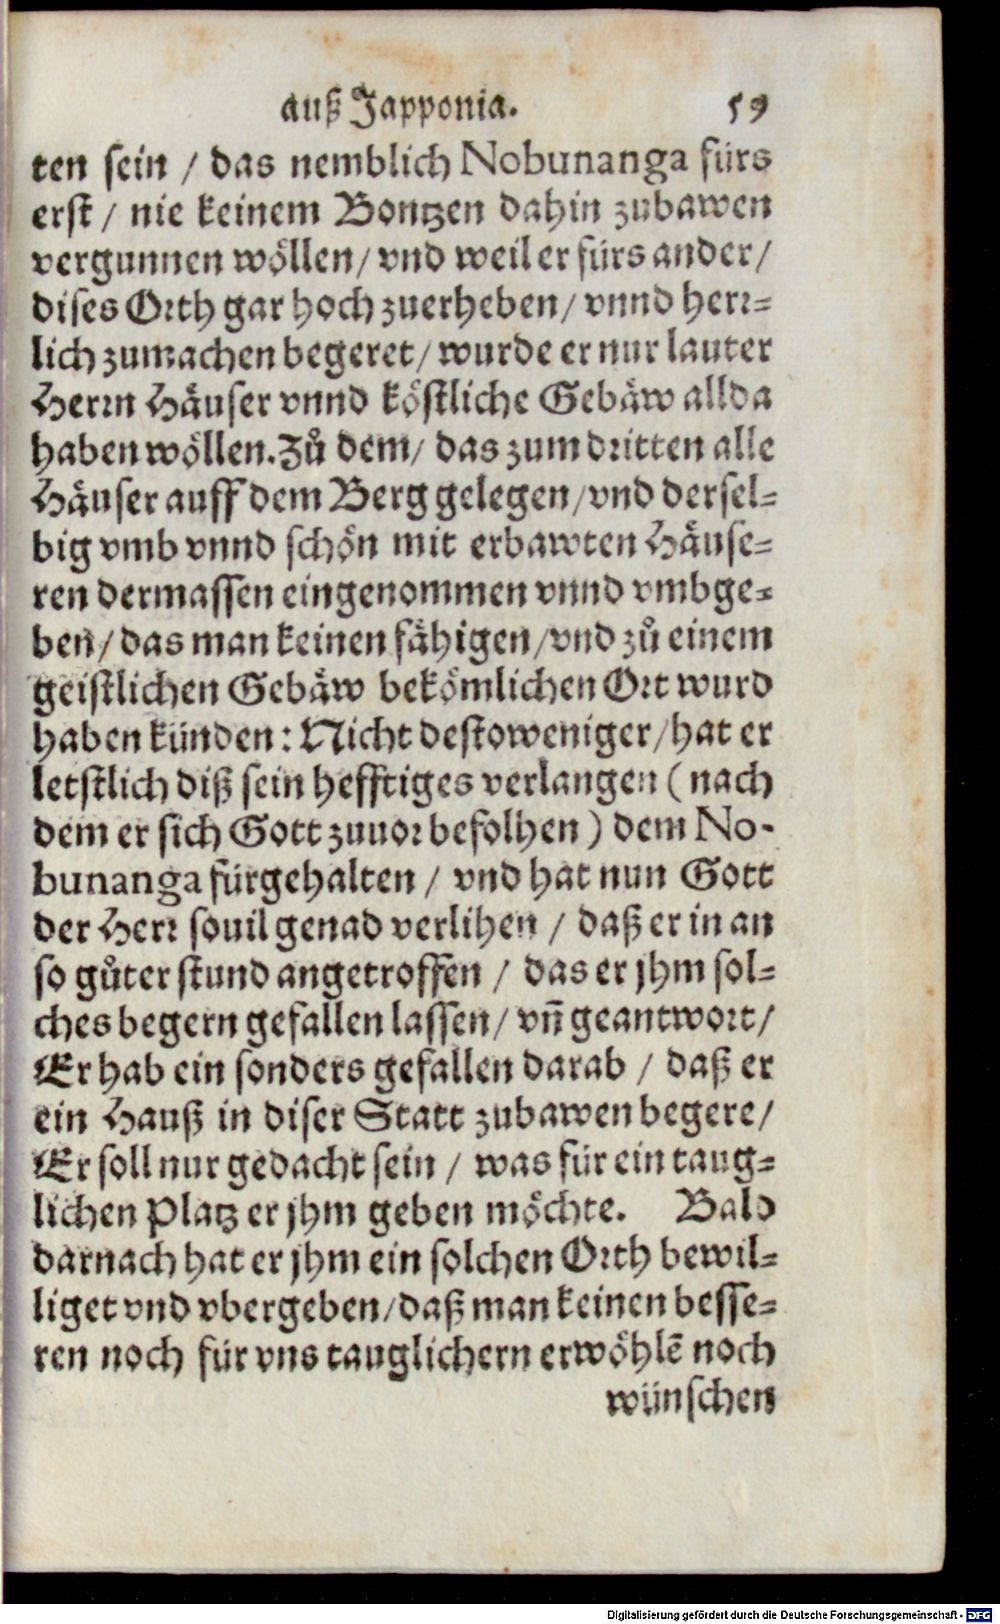 auß Japponia. 59
ten sein / das nemblich Nobunanga fürs
erst / nie keinem Bontzen dahin zubawen
vergunnen wöllen / vnd weil er fürs ander /
dises Orth gar hoch zuerheben / vnnd herr-
lich zumachen begeret / wurde er nur lauter
Herrn Häuser vnnd köstliche Gebäw allda
haben wöllen. Zů dem / das zum dritten alle
Häuser auff dem Berg gelegen / vnd dersel-
big vmb vnnd schön mit erbawten Häuse-
ren dermassen eingenommen vnnd vmbge-
ben / das man keinen fähigen / vnd zů einem
geistlichen Gebäw bekömlichen Ort wurd
haben künden: Nicht destoweniger / hat er
letstlich diß sein hefftiges verlangen (nach
dem er sich Gott zuuor befolhen) dem No-
bunanga fürgehalten / vnd hat nun Gott
der Herr souil genad verlihen / daß er in an
so gůter stund angetroffen / das er jhm sol-
ches begern gefallen lassen / vñ geantwort /
Er hab ein sonders gefallen darab / daß er
ein Hauß in diser Statt zubawen begere /
Er soll nur gedacht sein / was für ein taug-
lichen Platz er jhm geben möchte. Bald
darnach hat er jhm ein solchen Orth bewil-
liget vnd vbergeben / daß man keinen besse-
ren noch für vns tauglichern erwöhlē noch
wünschen
Digitalisierung gefördert durch die Deutsche Forschungsgemeinschaft - DFG